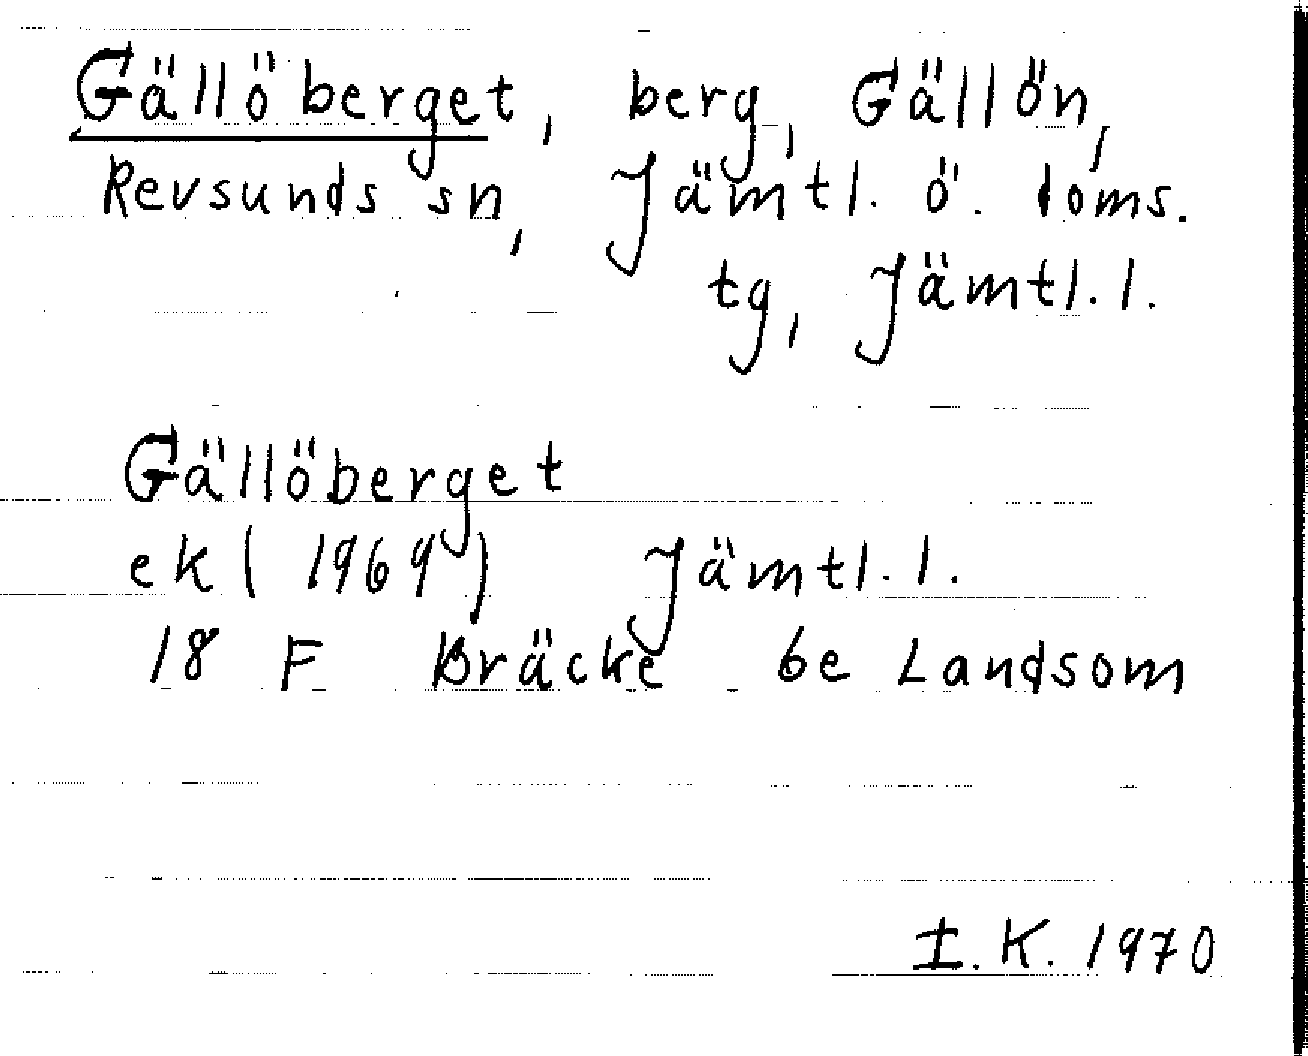 Gällöberget, berg, Gällön,
Revsunds sn, Jämtl. ö. doms.
tg, Jämtl. l.
Gällöberget
ek (1969) Jämtl. l.
18 F Bräcke 6e Landsom
I. K. 1970